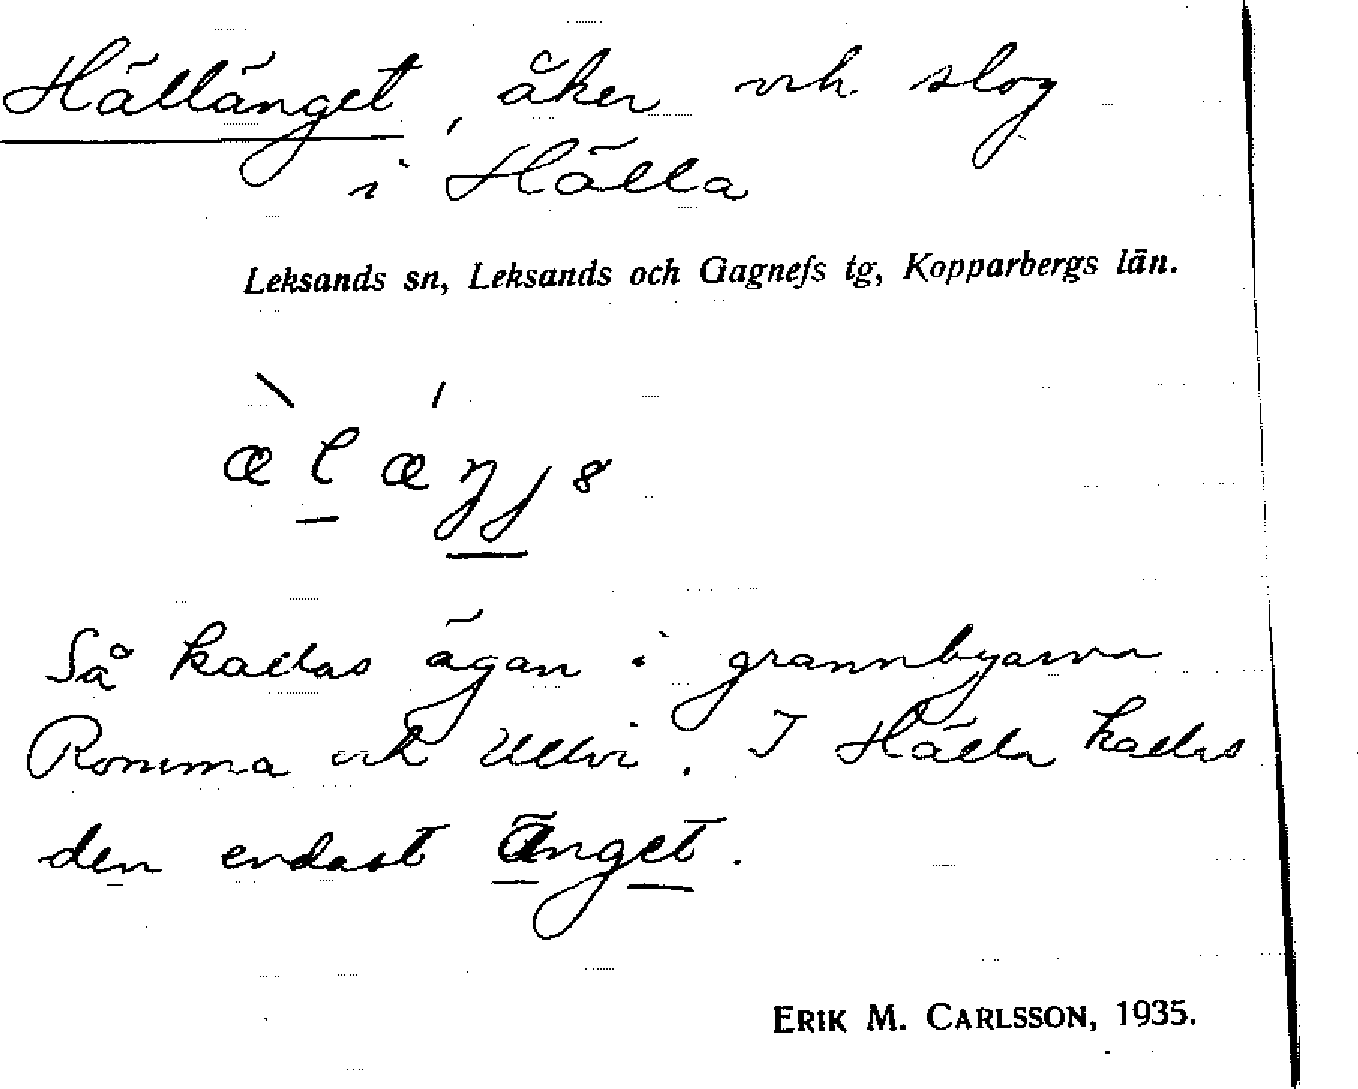 Hällänget, åker och slog
i Hälla
Leksands sn, Leksands och Gagnefs tg, Kopparbergs län.
Så kallas ägan i grannbyarna
Romma och Ullvi. I Hälla kallas
den endast änget.
ERIK M. CARLSSON, 1935.